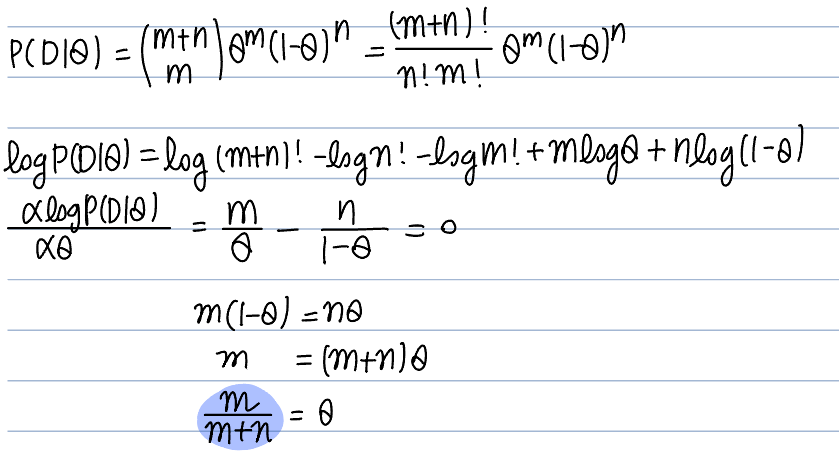 P(D|θ) = (m+n m) θ^m (1-θ)^n = (m+n)! / n! m! θ^m (1-θ)^n
log P(D|θ) = log (m+n)! - log n! - log m! + m log θ + n log (1-θ)
α log P(D|θ) / αθ = m/θ - n/(1-θ) = 0
m(1-θ) = nθ
m = (m+n)θ
m/(m+n) = θ